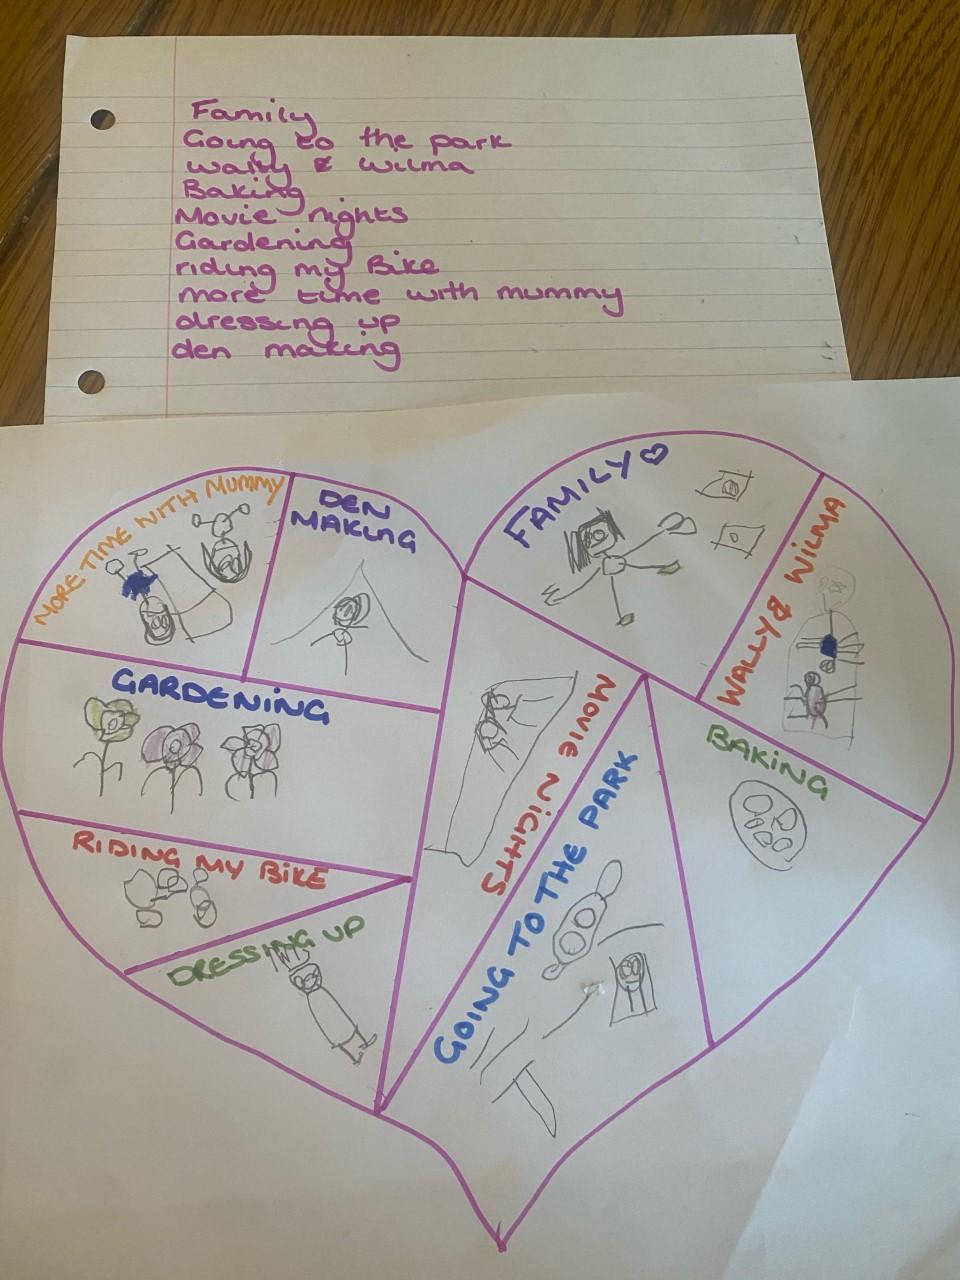 Family
Going to the park
wally & wilma
Baking
Movie nights
Gardening
riding my Bike
more time with mummy
dressing up
den making
MORE TIME WITH MUMMY
DEN
MAKING
FAMILY
WALLY & WILMA
GARDENING
MOVIE NIGHTS
GOING TO THE PARK
BAKING
RIDING MY BIKE
DRESSING UP